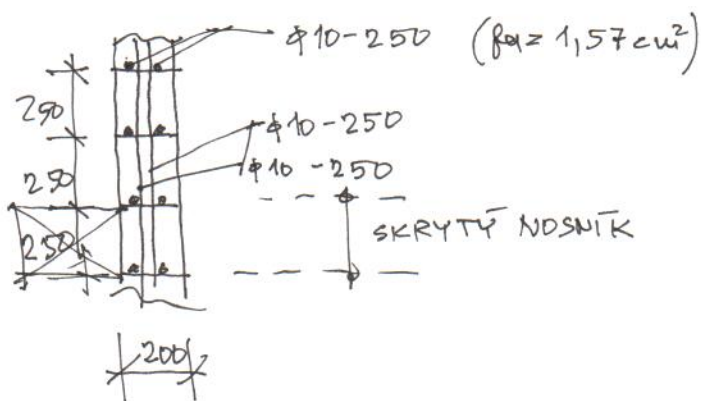 ϕ10-250 (fa = 1,57 cm²)
250
ϕ10-250
250
ϕ10-250
SKRYTÝ NOSNÍK
250
200